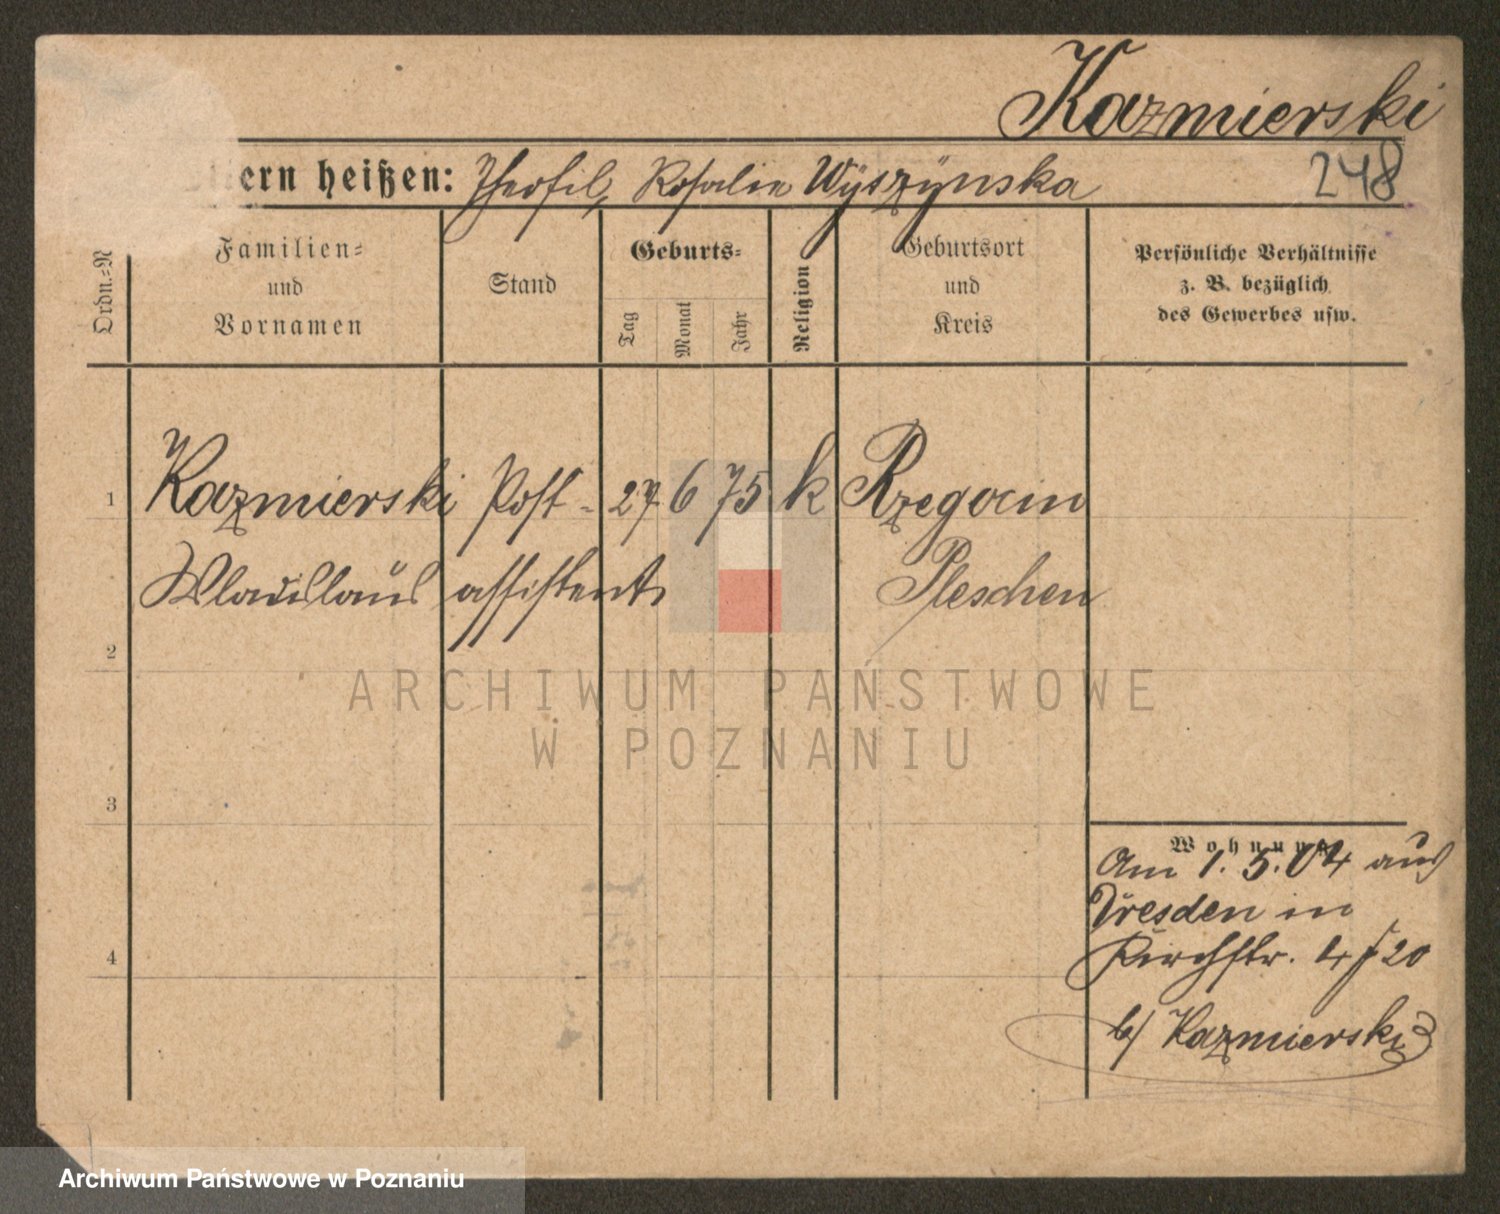 Kazmierski
ern heißen: Theofil, Rosalie Wÿszÿnska
248
Ordn.-N
Familien-
und
Vornamen
Stand
Geburts-
Tag
Monat
Jahr
Religion
Geburtsort
und
Kreis
Persönliche Verhältnisse
z. B. bezüglich
des Gewerbes usw.
1
Kazmierski Post- 27 6 75 k Rzegocin
Wladislaus assistent Pleschen
2
ARCHIWUM PAŃSTWOWE
W POZNANIU
3
Wohnung
Am 1. 5. 04 aus
Dresden in
Kirchstr. 4 f 20
4
b/ Kazmierski
Archiwum Państwowe w Poznaniu